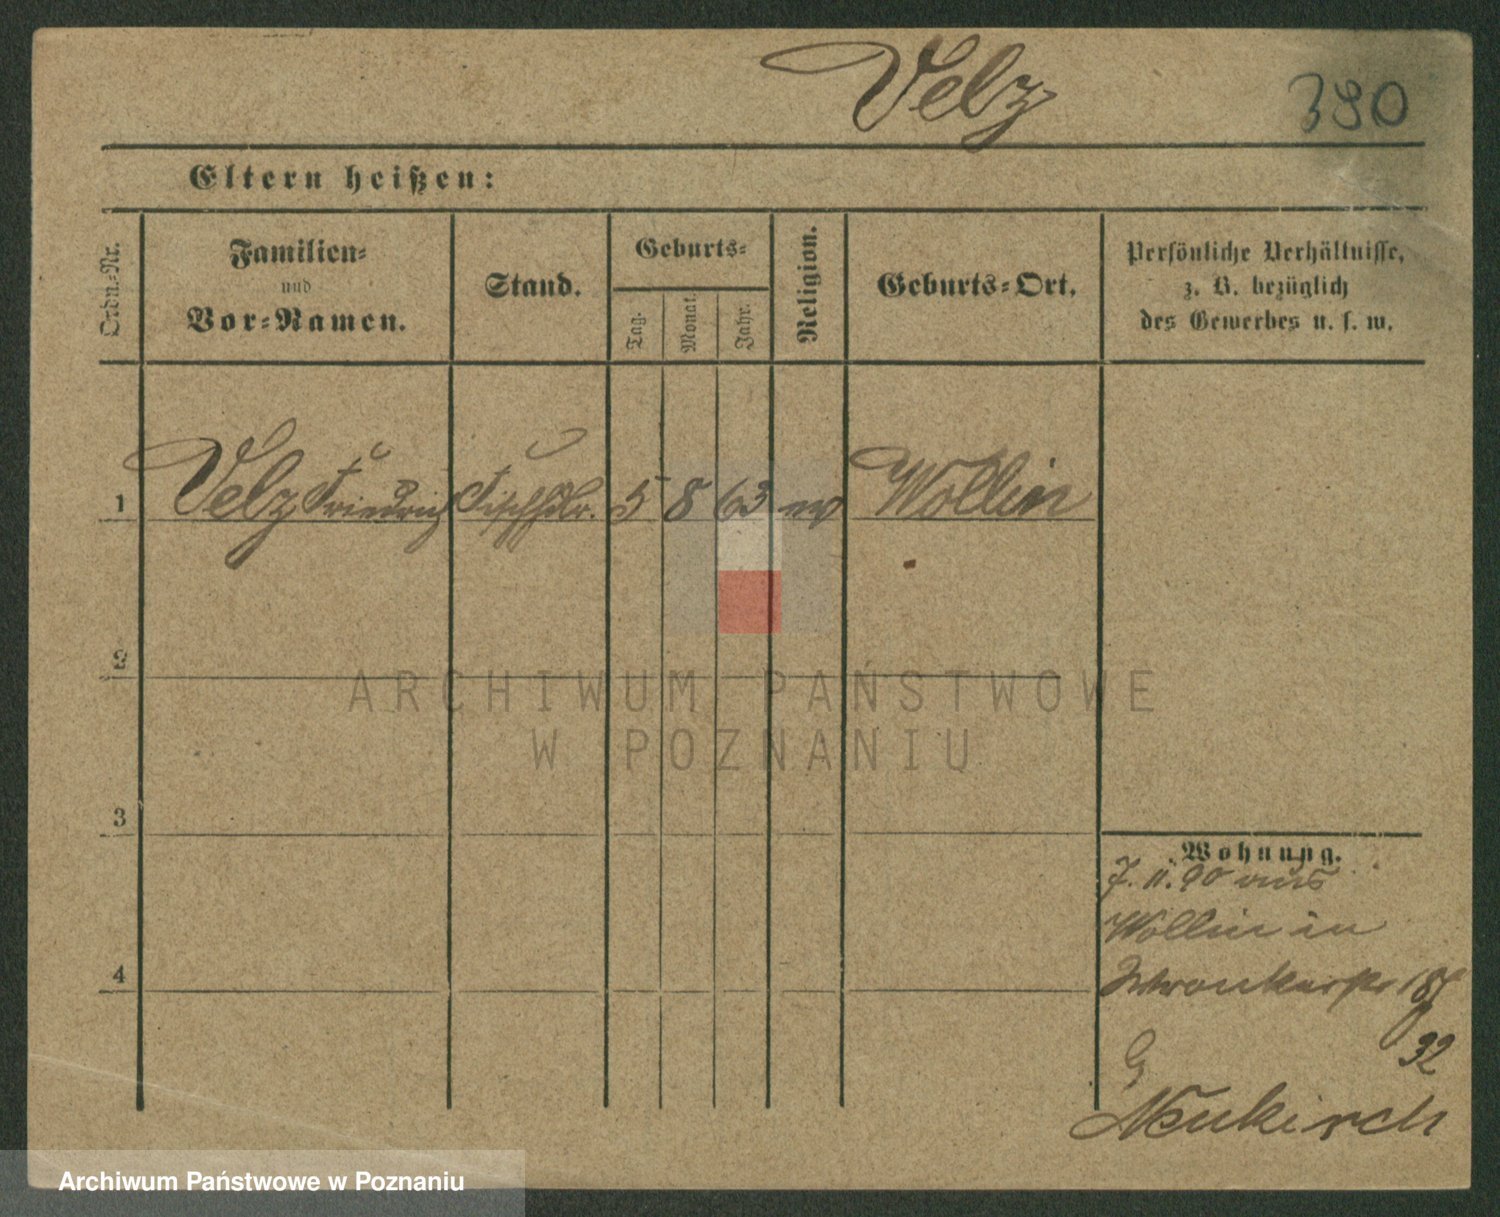 Velz
390
Eltern heißen:
Ordn.-Nr.
Familien-
und
Vor-Namen.
Stand.
Geburts-
Tag.
Monat.
Jahr.
Religion.
Geburts-Ort.
Persönliche Verhältnisse,
z. B. bezüglich
des Gewerbes u. s. w.
1 Velz Friedrich Fischhdlr. 5 8 63 ev Wollin
2
ARCHIWUM PAŃSTWOWE
W POZNANIU
3
4
Wohnung.
7. 11. 90 aus
Wollin in
Wronkerstr
32
Neukirch
Archiwum Państwowe w Poznaniu